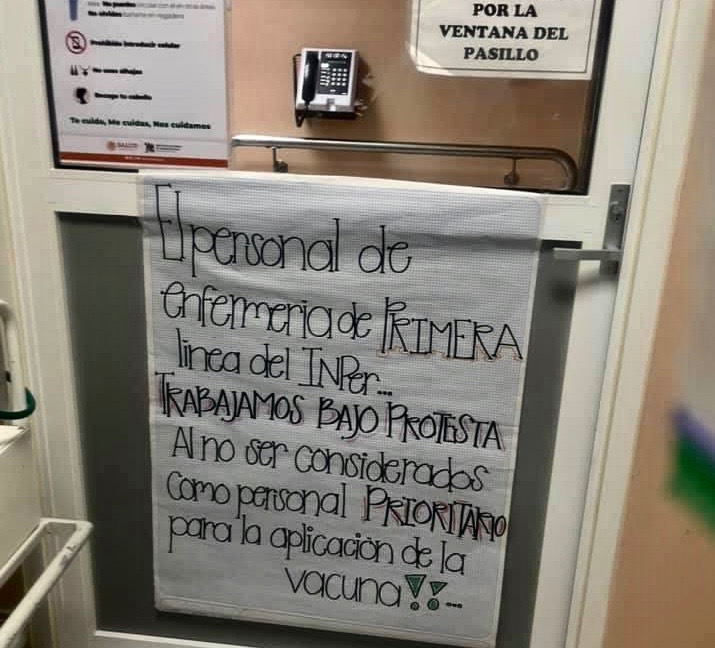 No puedes
No olvides
Prohibido introducir celular
No uses alhajas
Recoge tu cabello
Te cuido, Me cuidas, Nos cuidamos
SALUD
POR LA
VENTANA DEL
PASILLO
El personal de
enfermeria de PRIMERA
linea del INPer...
TRABAJAMOS BAJO PROTESTA
Al no ser considerados
como personal PRIORITARIO
para la aplicación de la
vacuna!!...